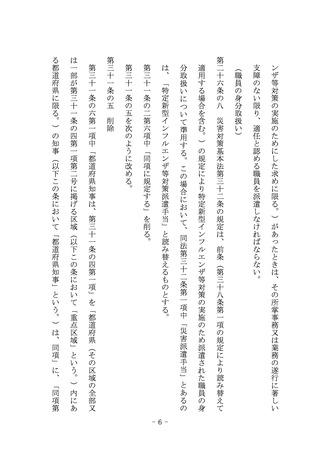 ンザ等対策の実施のためにした求めに限る。）があったときは、その所掌事務又は業務の遂行に著しい
支障のない限り、適任と認める職員を派遣しなければならない。
（職員の身分取扱い）
第二十六条の八　災害対策基本法第三十二条の規定は、前条（第三十八条第一項の規定により読み替えて
適用する場合を含む。）の規定により特定新型インフルエンザ等対策の実施のため派遣された職員の身
分取扱いについて準用する。この場合において、同法第三十二条第一項中「災害派遣手当」とあるの
は、「特定新型インフルエンザ等対策派遣手当」と読み替えるものとする。
第三十一条の二第六項中「同項に規定する」を削る。
第三十一条の五を次のように改める。
第三十一条の五　削除
第三十一条の六第一項中「都道府県知事は、第三十一条の四第一項」を「都道府県（その区域の全部又
は一部が第三十一条の四第一項第二号に掲げる区域（以下この条において「重点区域」という。）内にあ
る都道府県に限る。）の知事（以下この条において「都道府県知事」という。）は、同項」に、「同項第
- 6 -